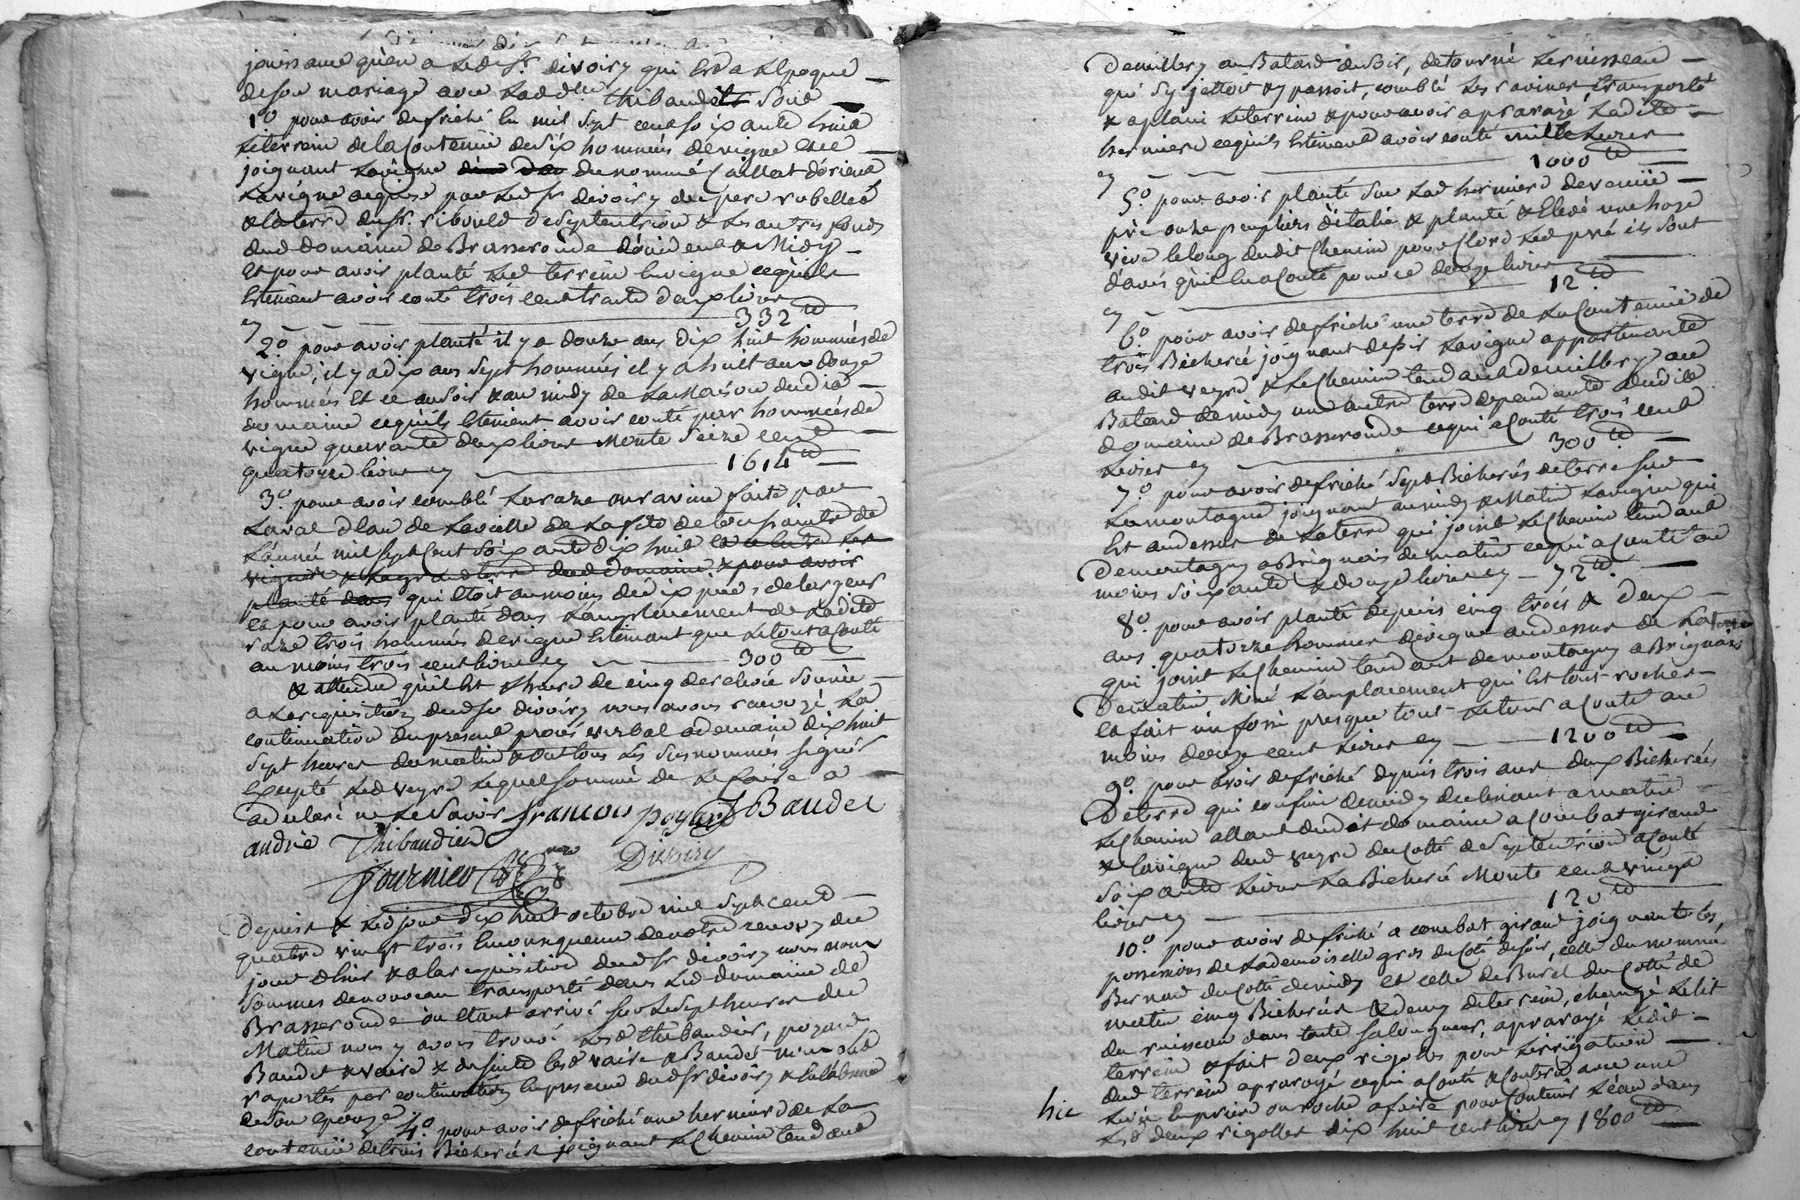 jouissance qu'en a led. Sr. divoiry qui Est a Lepoque
de son mariage avec Lad. dlle Thibaudier Sont
1.° pour avoir defriché En mil sept cent soixante huit
Le terrein de la Contenüe de Six hommées de vigne
joignant La vigne du nommé Caillat d'orient
La vigne acquise par Led. Sr divoiry du pere
& La terre du Sr. de Septentrion & Les autres fonds
dud. domaine de Brasseronde d'occident & Midy
Et pour avoir planté Led. terrein En vigne ce qu'ils
Estiment avoir couté trois cent trente deux livres
cy 332 tt
2.° pour avoir planté il y a douze ans dix huit hommées de
vigne, il y a dix ans Sept hommées il y a huit ans douze
hommées Et ce au Soir & au midy de La Maison dud.
domaine ce qu'ils Estiment avoir couté par hommées de
vigne quarante deux livres Monte Seize cent
quatorze livres cy 1614 tt
3.° pour avoir comblé La raze ou ravine faite par
Laval d'Eau de La veille de La fete de toussaints de
L'année mil sept Cent Soixante dix huit
vignes & La grande terre dud. domaine & pour avoir
planté dans qui Etoit au moins de dix pieds de largeur
et pour avoir planté dans L'emplacement de Ladite
raze trois hommées de vigne Estimant que Le tout a Couté
au moins trois cent livres cy 300 tt
& attendu qu'il Est L'heure de cinq de relevée Sonnée
a La requisition dud. Sr divoiry nous avons renvoyé La
continuation du present procés verbal a demain dix huit
Sept heures du matin & ont tous Les Susnommés Signés
Excepté Led. veyre Lequel Sommé de Le faire a
declaré ne Le Savoir françois poyard J Baudet
andrié Thibaudier
fournier Divoiry
Depuis & Led. jour dix huit octobre mil Sept cent
quatre vingt trois En consequence de notre renvoy du
jour d'hier & a la requisition dud. Sr divoiry nous nous
Sommes de nouveau transporté dans Led. domaine de
Brasseronde ou Etant arrivé Sur Les Sept heures du
Matin nous y avons trouvé Lesd. thibaudier, poyard
Baudet & veire & de suite Lesd. veire & Baudet nous ont
raportés par continuation En presence dud. Sr divoiry & En L'absence
de son Epouze 4.° pour avoir defriché une hermiere de La
contenüe de trois Bicherées joignant Le Chemin tendant
Demillery au Batard du Soir, detourné Le ruisseau
qui S'y jettoit & y passoit, comblé Les ravines, transporté
& aplani Le terrein & pour avoir aprarayé Ladite
hermiere ce qu'ils Estiment avoir couté mille Livres
cy 1000 tt
5.° pour avoir planté Sur Lad. hermiere devenüe
pré onze peupliers d'italie & planté & Elevé une haye
vive le long dudit Chemin pour Clore Led. pré ils Sont
d'avis qu'il En a Couté pour ce douze livres
cy 12 tt
6.° pour avoir defriché une terre de La Contenüe de
trois Bicherée joignant de Soir La vigne appartenante
audit veyre & Le Chemin tendant demillery au
Batard de midy une autre terre dependante dudit
domaine de Brasseronde ce qui a Couté trois cent
Livres cy 300 tt
7.° pour avoir defriché Sept Bicherées de terre Sur
La montagne joignant au midy & Matin La vigne qui
Est au dessus de La terre qui joint Le Chemin tendant
de montagny a Brignais de matin ce qui a Couté au
moins Soixante & douze livres cy 72 tt
8.° pour avoir planté depuis cinq trois & deux
ans quatorze hommées de vigne au dessus de La terre
qui joint Le Chemin tendant de montagny a Brignais
de Matin Miné L'emplacement qui Est tout rocher
et fait un fossé presque tout Le tour a Couté au
moins douze cent Livres cy 1200 tt
9.° pour avoir defriché depuis trois ans deux Bicherées
de terre qui confine de midy declinant a matin
Le Chemin allant dudit domaine a Combat girand
& La vigne dud. veyre du Coté de Septentrion a Couté
Soixante Livres La Bicherée Monte cent vingt
livres cy 120 tt
10.° pour avoir defriché a combat girand joignant Les
possessions de La demoiselle gros du Coté de Soir, celle du nommé
Bernard du Coté de midy et celle de Buret du Coté de
matin cinq Bicherées & demy de terrein, changé Le lit
du ruisseau dans toute Sa longueur, aprarayé Ledit
terrein & fait deux rigoles pour L'errigation
dud. terrein aprarayé ce qui a Couté & Contre avec une
hic
Lesd. deux rigolles dix huit cent livres cy 1800 tt